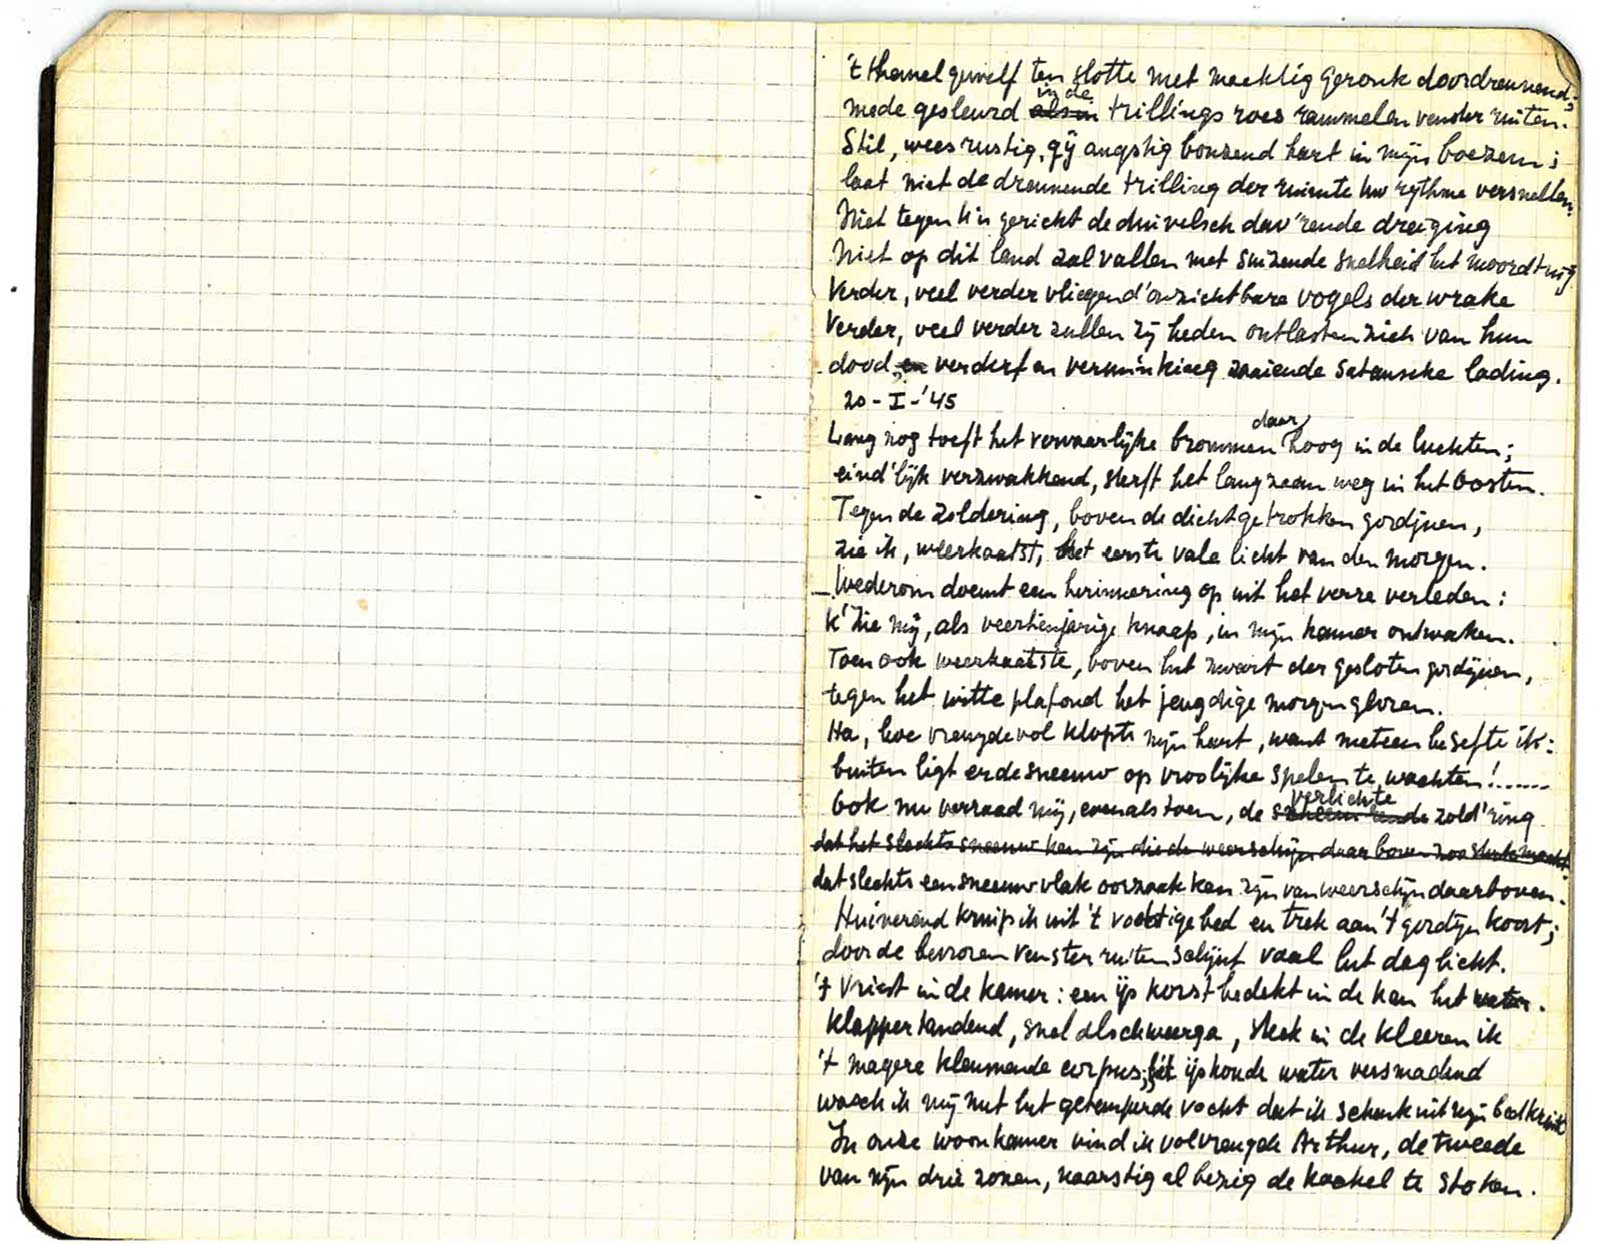 't Hemelgewelf ten slotte met machtig geronk doordreunend;
in de
mede gesleurd als in trillings roes rammelen venster ruiten.
Stil, wees rustig, gij angstig bonzend hart in mijn boezem;
laat niet de dreunende trilling der ruimte uw rythme versnellen.
Niet tegen U is gericht de duivelsch dav'rende dreiging
Niet op dit land zal vallen met suizende snelheid het moordtuig
Verder, veel verder vliegen d'onzichtbare vogels der wrake
Verder, veel verder zullen zij heden ontlasten zich van hun
dood, en verderf en verminking zaaiende Satansche lading.
20-I-'45
daar
Lang nog toeft het vervaarlijke brommen hoog in de luchten;
eind'lijk verzwakkend, sterft het langzaam weg in het Oosten.
Tegen de zoldering, boven de dichtgetrokken gordijnen,
zie ik, weerkaatst, het eerste vale licht van den morgen.
Wederom doemt een herinnering op uit het verre verleden:
k' Zie mij, als veertienjarige knaap, in mijn kamer ontwaken.
Toen ook weerkaatste, boven het zwart der gesloten gordijnen,
tegen het witte plafond het jeugdige morgengloren.
Ha, hoe vreugdevol klopte mijn hart, want meteen besefte ik:
buiten ligt er de sneeuw op vroolijke spelen te wachten!......
verlichte
Ook nu verraad mij, evenals toen, de scheem'rende zold'ring
dat het slechts sneeuw kan zijn die de weerschijn daar boven zoo sterk maakt.
dat slechts een sneeuwvlak oorzaak kan zijn van weerschijn daarboven.
Huiverend kruip ik uit 't vochtige bed en trek aan 't gordijn koort;
door de bevroren vensterruiten schijnt vaal het daglicht.
't Vriest in de kamer: een ijs korst bedekt in de kan het water.
Klappertandend, snel als de weerga, steek in de kleeren ik
't magere kleumende corpus; het ijskoude water versmadend
wasch ik mij met het getemperde vocht dat ik schenk uit mijn bedkruik
In onze woonkamer vind ik vol vreugde Arthur, de tweede
van mijn drie zonen, naarstig al bezig de kachel te stoken.